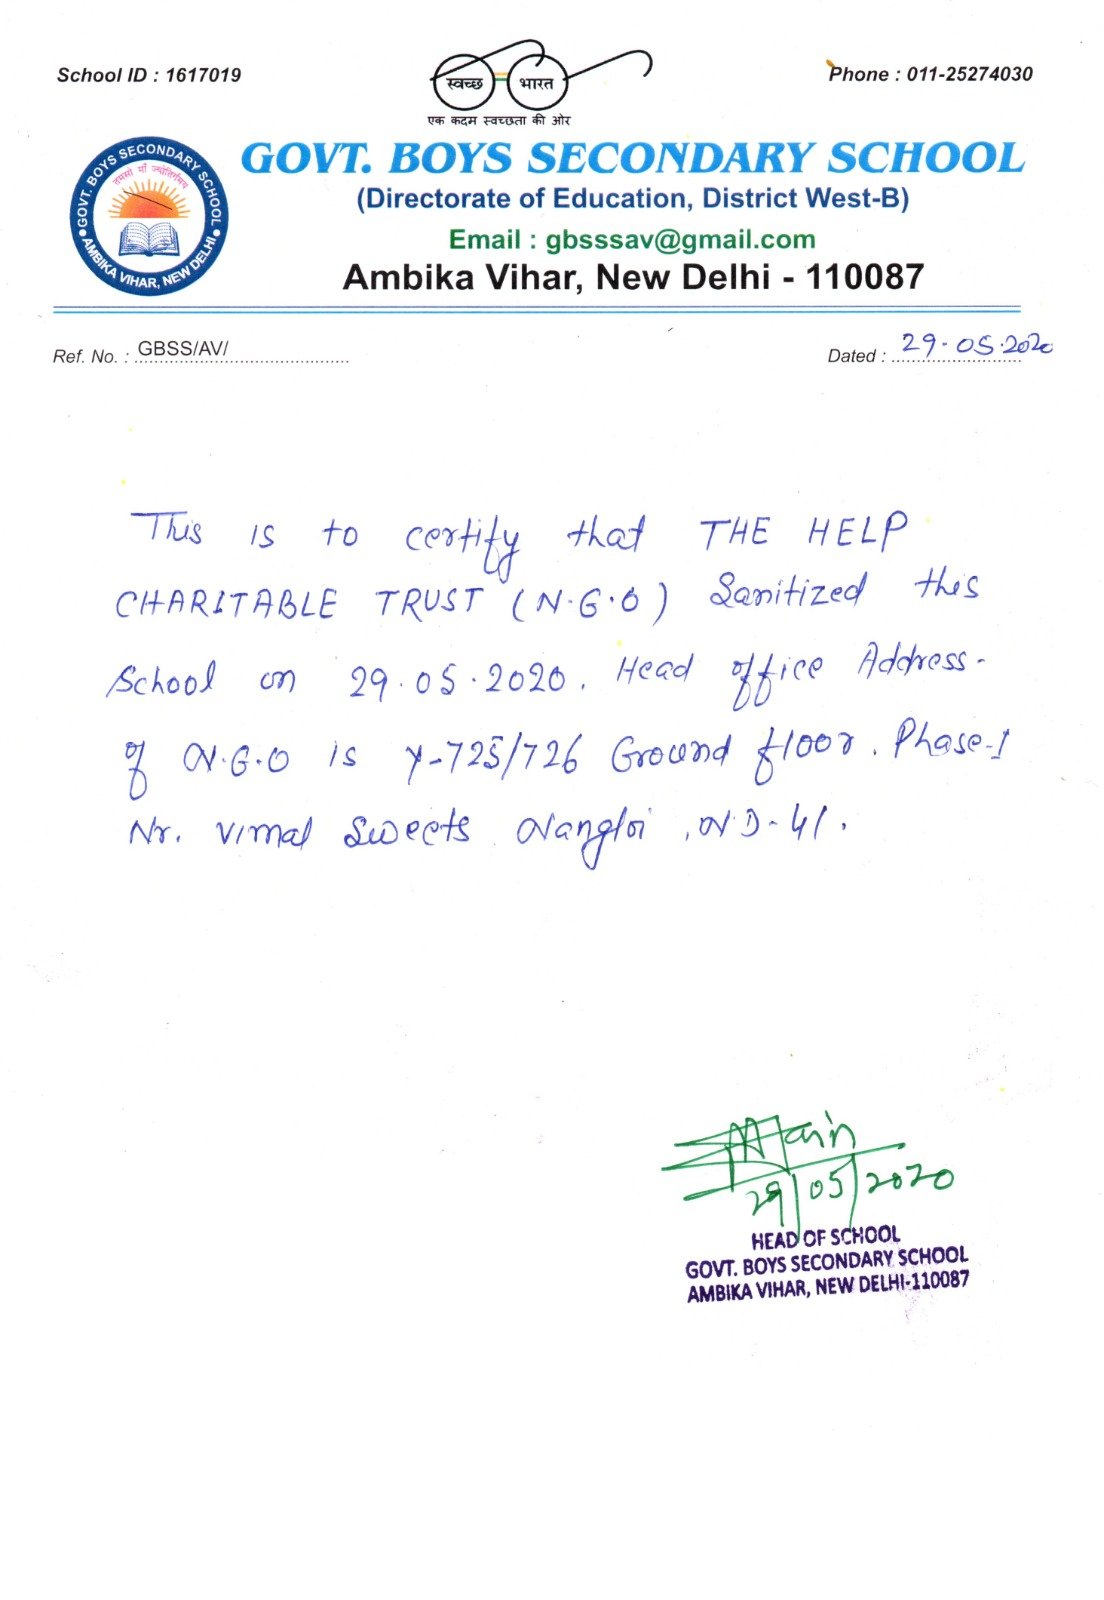 School ID : 1617019
स्वच्छ भारत
एक कदम स्वच्छता की ओर
Phone : 011-25274030
GOVT. BOYS SECONDARY SCHOOL
AMBIKA VIHAR, NEW DELHI
तमसो मां ज्योतिर्गमय
GOVT. BOYS SECONDARY SCHOOL
(Directorate of Education, District West-B)
Email : gbsssav@gmail.com
Ambika Vihar, New Delhi - 110087
Ref. No. : GBSS/AV/
Dated : 29.05.2020
This is to certify that THE HELP
CHARITABLE TRUST (N.G.O) Sanitized this
School on 29.05.2020. Head office Address-
of N.G.O is Y-725/726 Ground floor. Phase-I
Nr. Vimal Sweets Nangloi, N.D-41.
29/05/2020
HEAD OF SCHOOL
GOVT. BOYS SECONDARY SCHOOL
AMBIKA VIHAR, NEW DELHI-110087